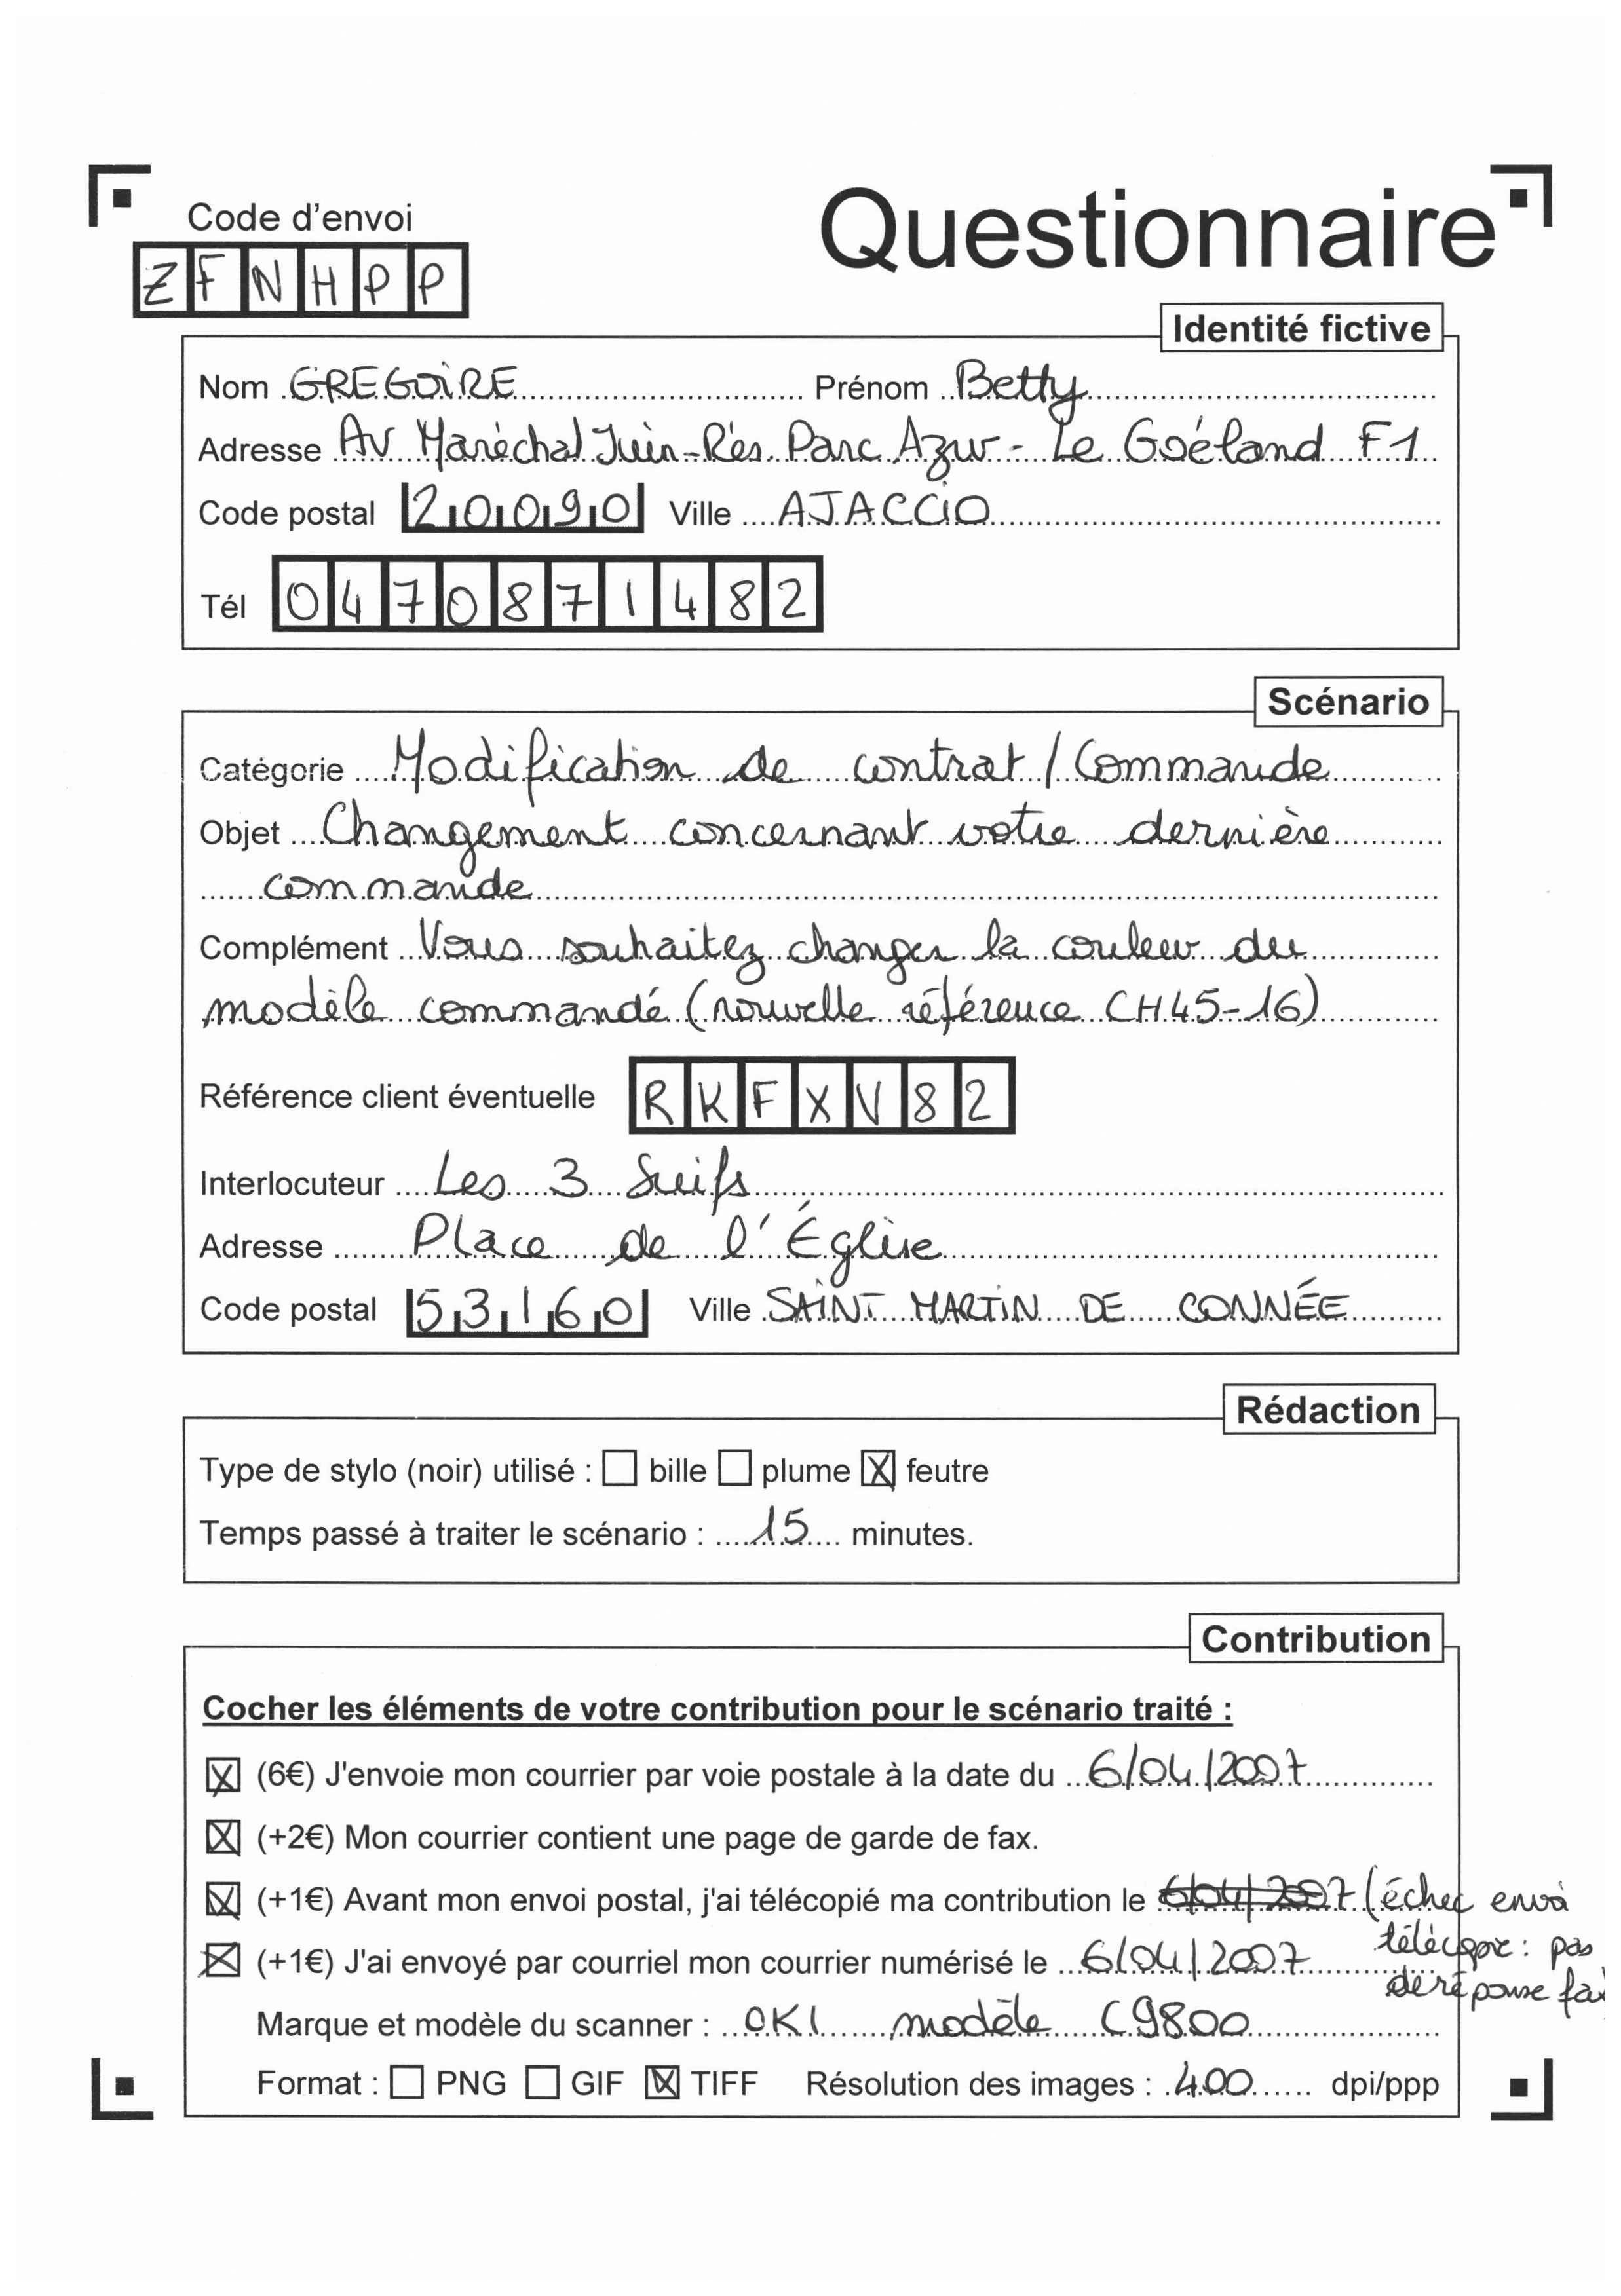 Code d'envoi
Questionnaire
ZFNHPP
Identité fictive
Nom GREGOIRE Prénom Betty
Adresse Av Maréchal Juin-Rés. Parc Azur - Le Goéland F1
Code postal 20090 Ville AJACCIO
Tél 0470871482
Scénario
Catégorie Modification de contrat / Commande
Objet Changement concernant votre dernière
commande
Complément Vous souhaitez changer la couleur du
modèle commandé (nouvelle référence CH45-16)
Référence client éventuelle RKFXV82
Interlocuteur Les 3 Suifs
Adresse Place de l'Église
Code postal 53160 Ville SAINT MARTIN DE CONNÉE
Rédaction
Type de stylo (noir) utilisé : bille plume X feutre
Temps passé à traiter le scénario : 15 minutes.
Contribution
Cocher les éléments de votre contribution pour le scénario traité :
X (6€) J'envoie mon courrier par voie postale à la date du 6/04/2007
X (+2€) Mon courrier contient une page de garde de fax.
X (+1€) Avant mon envoi postal, j'ai télécopié ma contribution le 6/04/2007 (échec envoi
télécopie : pas
X (+1€) J'ai envoyé par courriel mon courrier numérisé le 6/04/2007
de réponse
Marque et modèle du scanner : OKI modèle C9800
Format : PNG GIF X TIFF Résolution des images : 400 dpi/ppp